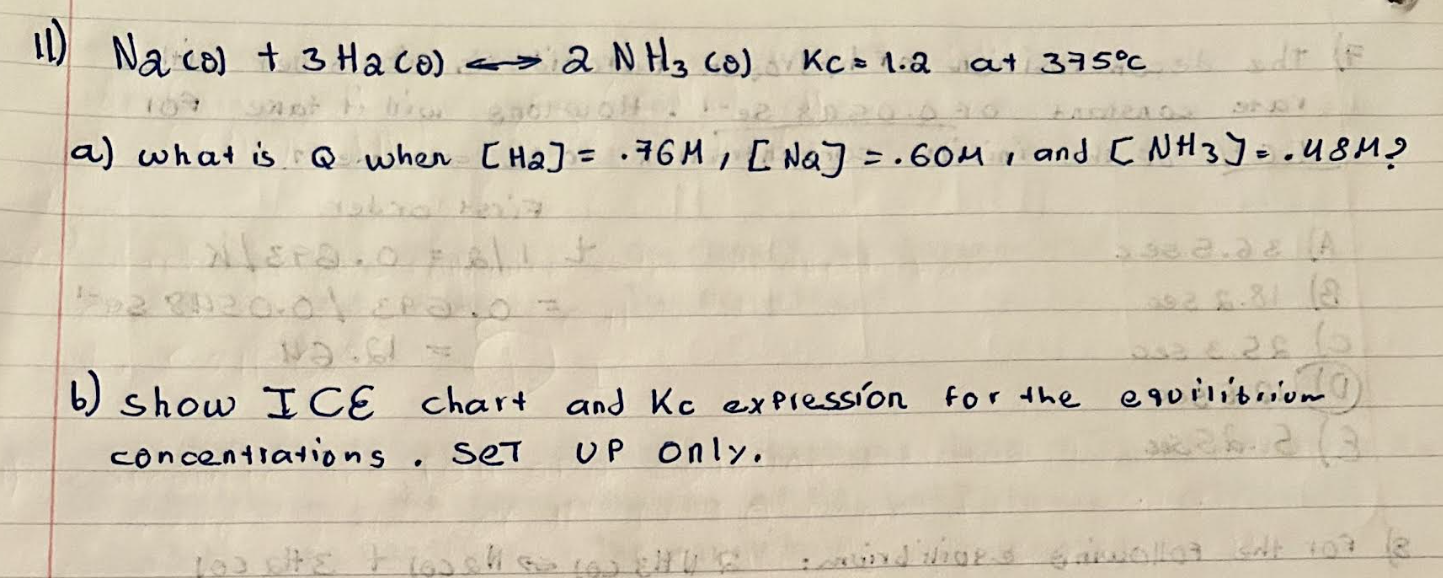 11) N2 (g) + 3 H2 (g) ⟷ 2 NH3 (g) Kc = 1.2 at 375°C
a) what is Q when [H2] = .76M, [N2] = .60M, and [NH3] = .48M?
b) show ICE chart and Kc expression for the equilibrium
concentrations. SET UP only.